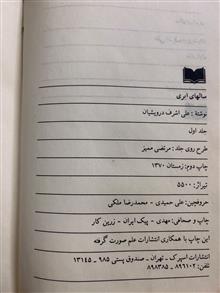 سالهای ابری
نوشتهٔ : علی اشرف درویشیان
جلد اول
طرح روی جلد : مرتضی ممیز
چاپ دوم: زمستان ۱۳۷۰
تیراژ: ۵۵۰۰
حروفچین: علی حمیدی - محمدرضا ملکی
چاپ و صحافی: مهدی - پیک ایران - زرین کار
این چاپ با همکاری انتشارات علم صورت گرفته
انتشارات اسپرک - تهران - صندوق پستی ۹۸۵ - ۱۳۱۴۵
تلفن: ۸۹۶۱۰۲ - ۸۹۸۳۸۵